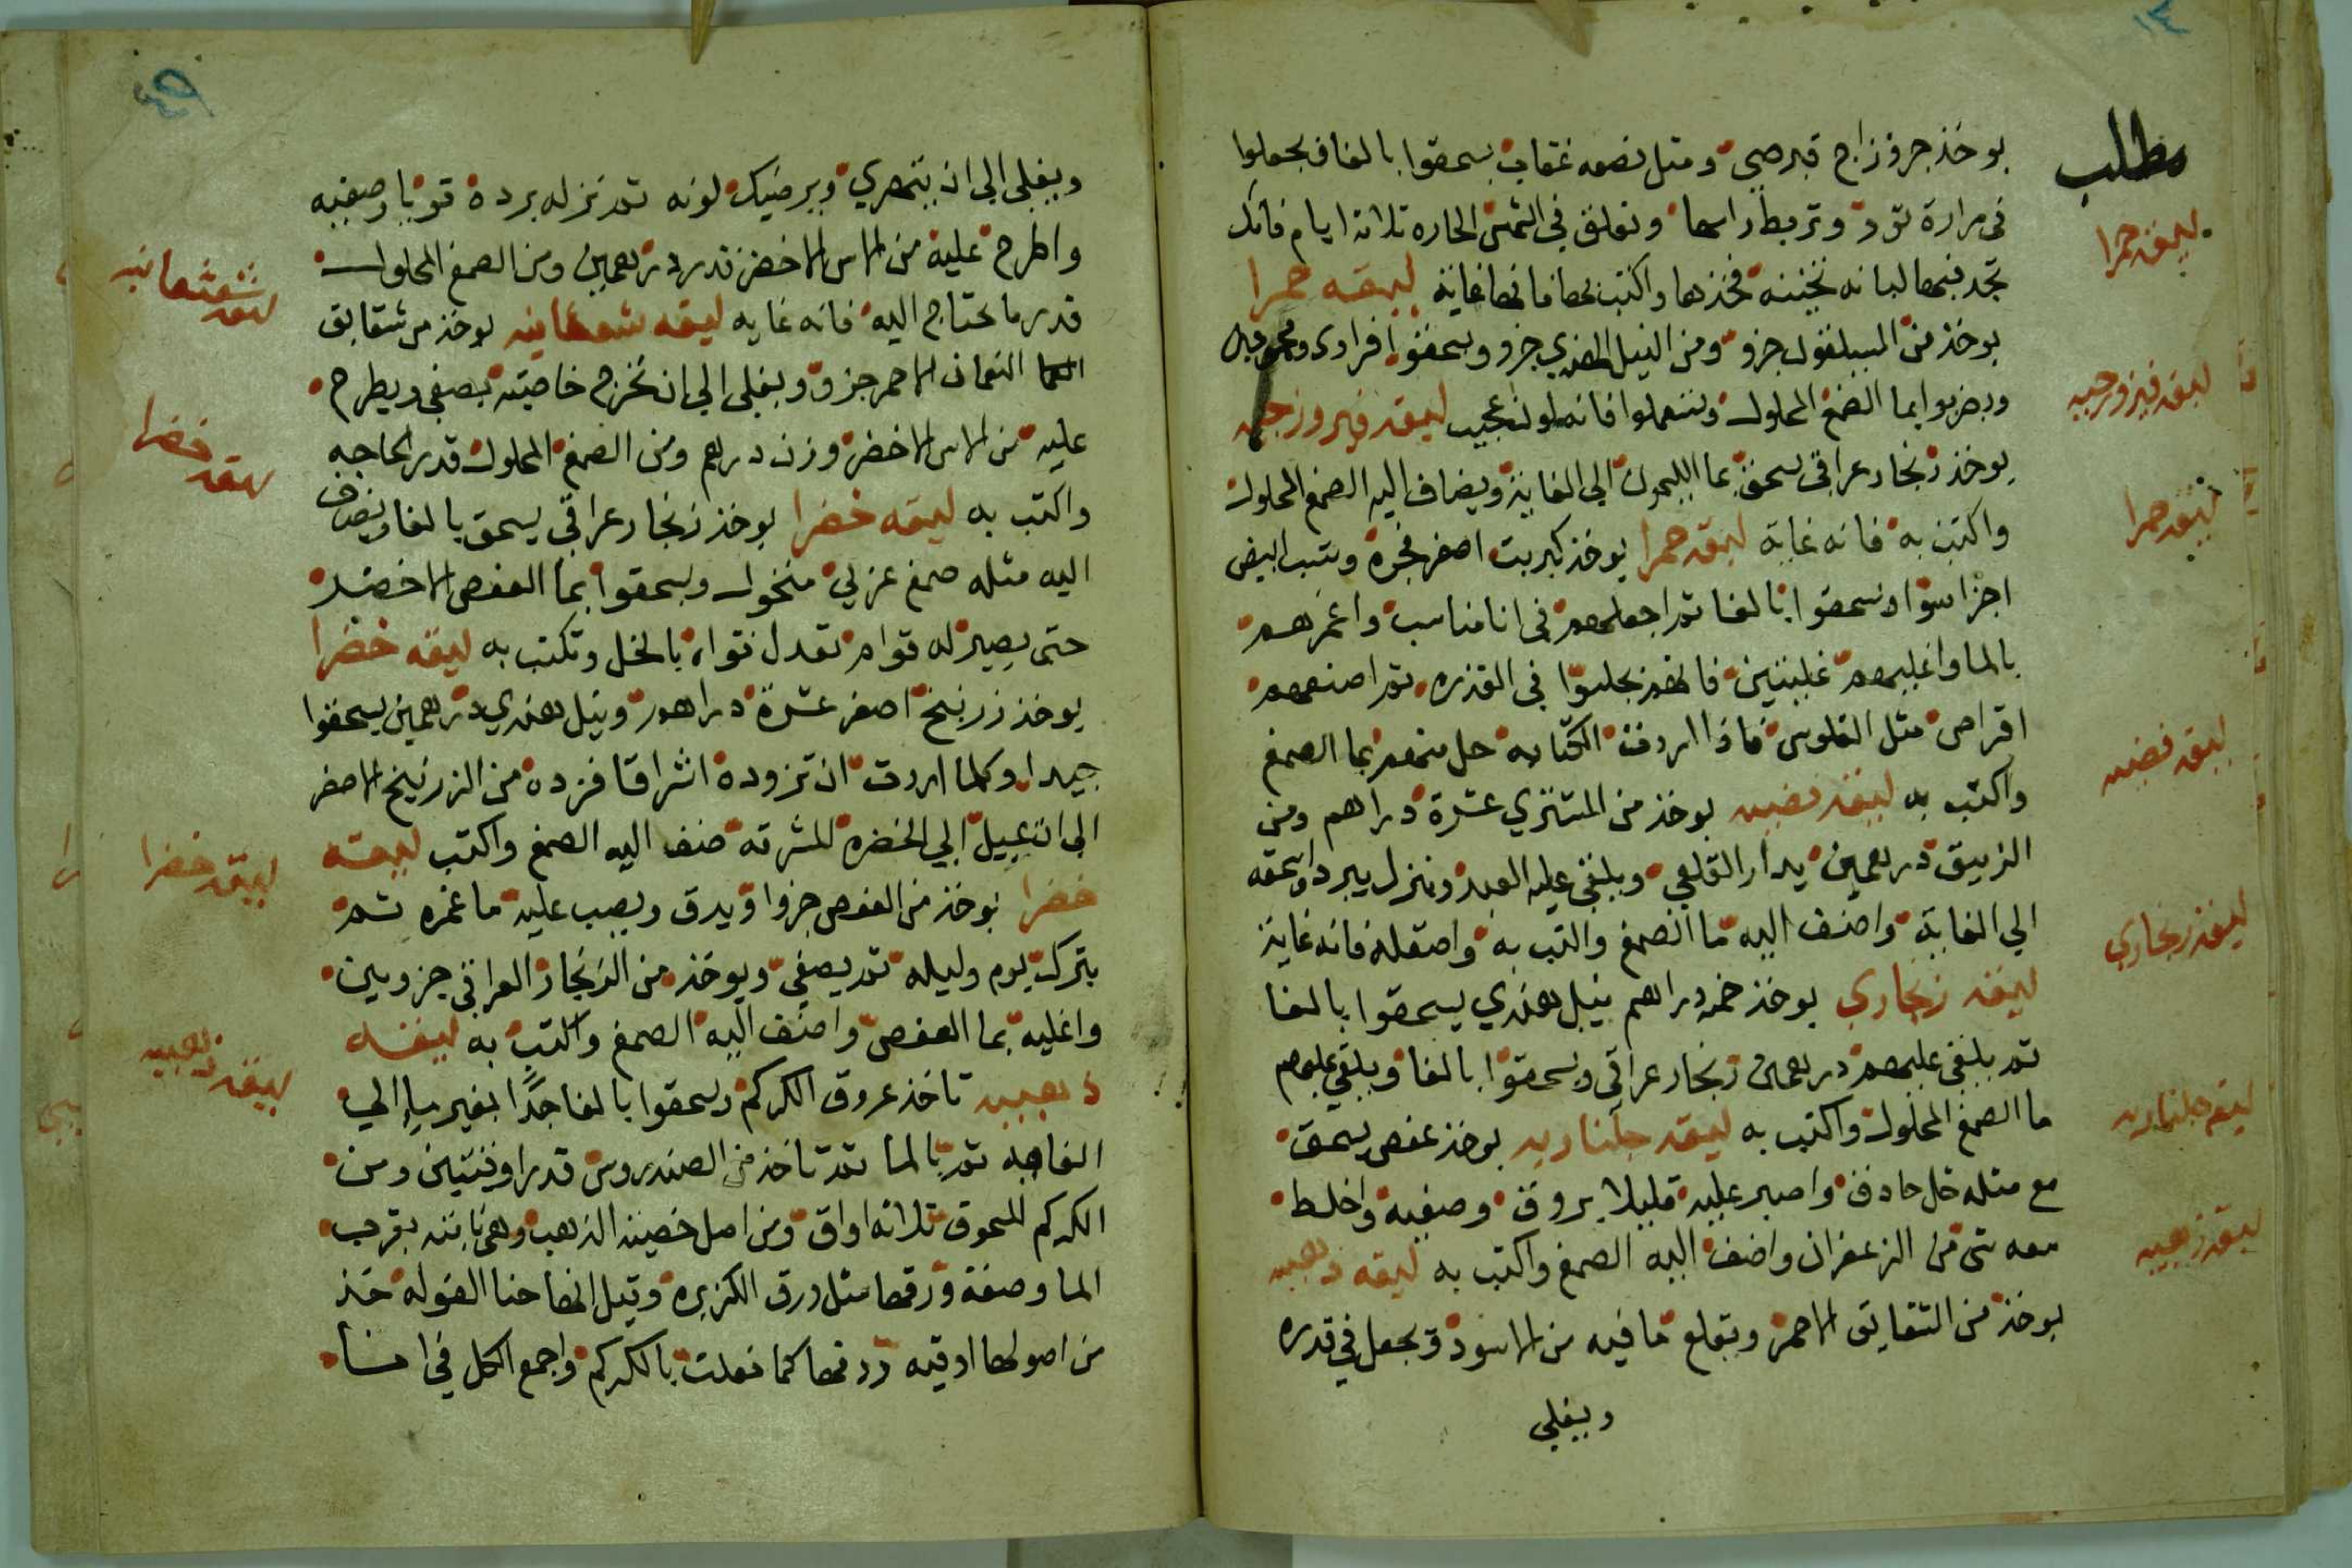 ١٤
مطلب
يوخذ جزو زاج قبرصي ومثل نصفه عقاب يسحقوا بالغا ويجعلوا
في مرارة ثور وتربط راسها وتعلق في الشمس الحاره ثلاثة ايام فانك
تجد فيها لبانه تخينه فخذها واكتب بها فانها غاية ليقه حمرا
ليقه حمرا
يوخذ من السيلقون جزو ومن النيل الهندي جزو ويسحقوا افرادى
ويضربوا بما الصمغ المحلول ويستعملوا فانه لون عجيب ليقه فيروزجيه
ليقه فيروزجيه
يوخذ زنجار عراقي يسحق بما الليمون الي الغاية ويضاف اليه الصمغ المحلول
واكتب به فانه غاية ليقه حمرا يوخذ كبريت اصفر وشب ابيض
ليقه حمرا
اجزا سوا ويسحقوا بالغا ثم اجعلهم في انا مناسب واغمرهم
بالما واغليهم غليتين فانهم في القدره ثم اصنعهم
اقراص مثل الفلوس فاذا اردت الكتابه حل منهم بما الصمغ
واكتب به ليقه فضيه يوخذ من المشتري عشرة دراهم ومن
ليقه فضيه
الزيبق درهمين يدار القلعي ويلقي عليه العبد وينزل يبرد واسحقه
الي الغاية واضف اليه ما الصمغ واكتب به واصقله فانه غاية
ليقه زنجاري يوخذ خمه دراهم نيل هندي يسحقوا بالغا
ليقه زنجاري
ثم يلقي عليهم درهمين زنجار عراقي ويسحقوا بالغا ويلقي عليهم
ما الصمغ المحلول واكتب به ليقه جلناريه يوخذ عفص يسحق
ليقه جلناريه
مع مثله خل حادق واصبر عليه قليلا يروق وصفيه واخلط
معه شي من الزعفران واضف اليه الصمغ واكتب به ليقه ذهبيه
ليقه ذهبيه
يوخذ من الشقايق الاحمر ويقلع ما فيه من الاسود ويجعل في قدره
ويغلي
ويغلي الي ان يتهري ويرضيك لونه ثم نزله برده قويا وصفيه
واطرح عليه من الاس الاخضر قدر درهمين ومن الصمغ المحلول
قدر ما تحتاج اليه فانه غايه ليقه شعثانيه يوخذ من شقايق
ليقه شعثانيه
النعمان الاحمر جزو ويغلي الي ان تخرج خاصيته يصفي ويطرح
عليه من الاس الاخضر وزن درهم ومن الصمغ المحلول قدر الحاجه
واكتب به ليقه خضرا يوخذ زنجار عراقي يسحق بالغا ويضاف
ليقه خضرا
اليه مثله صمغ عربي منخول ويسحقوا بما العفص الاخضر
حتى يصير له قوام تعدل قوامه بالخل وتكتب به ليقه خضرا
يوخذ زرنيخ اصفر عشرة دراهم ونيل هندي درهمين يسحقوا
جيدا وكلما اردت ان تزوده اشراقا فزده من الزرنيخ الاصفر
الي ان يميل الي الخضره المشرقه ضف اليه الصمغ واكتب ليقه
خضرا يوخذ من العفص جزوا ويدق ويصب عليه ما غمره ثم
ليقه خضرا
يترك يوم وليله ثم يصفي ويوخذ من الزنجار العراقي جزوين
واغليه بما العفص واضف اليه الصمغ واكتب به ليقه
ذهبيه تاخذ عروق الكركم ويسحقوا بالغا جدا بغير ما الي
ليقه ذهبيه
الغايه ثم بالما ثم تاخذ من الصندروس قدر اوقيتين ومن
الكركم المسحوق ثلاثه اواق ومن اصل خصيه الذهب وهي نابته بقرب
الما وصفة ورقها مثل ورق الكزبره وقيل انها حنا الغوله خذ
من اصولها اوقيه ودقها كما فعلت بالكركم واجمع الكل في